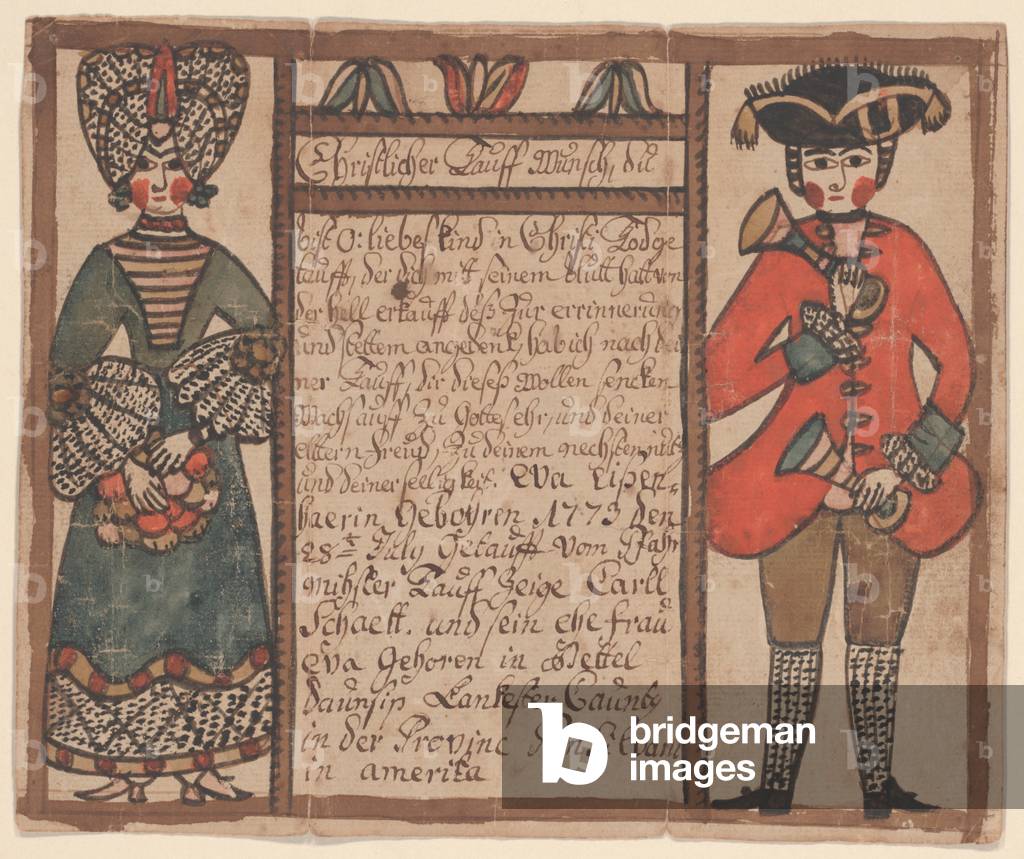 Christlicher Tauff Wunsch, du
bist O: liebes kind in Christi Tod ge
taufft, der dich mit seinem blutt hatt von
der hell erkaufft deß Zur errinnerung
und stettem angedenk, hab ich nach dei
ner Tauff, dir dieseß wollen sencken
Wachs auff zu Gottes ehr, und deiner
eltern freud, Zu deinem nechsten nutz
und deiner seeligkeit. Eva Eisen-
haerin Geboyren 1773 den
28 July Getaufft vom Pfahr
Tauff Zeige Carll
Schaett. und sein ehe frau
Eva Gehoren in Bettel
Daunsip Lankester Caunty
in der Provinc
in amerika
bridgeman
images